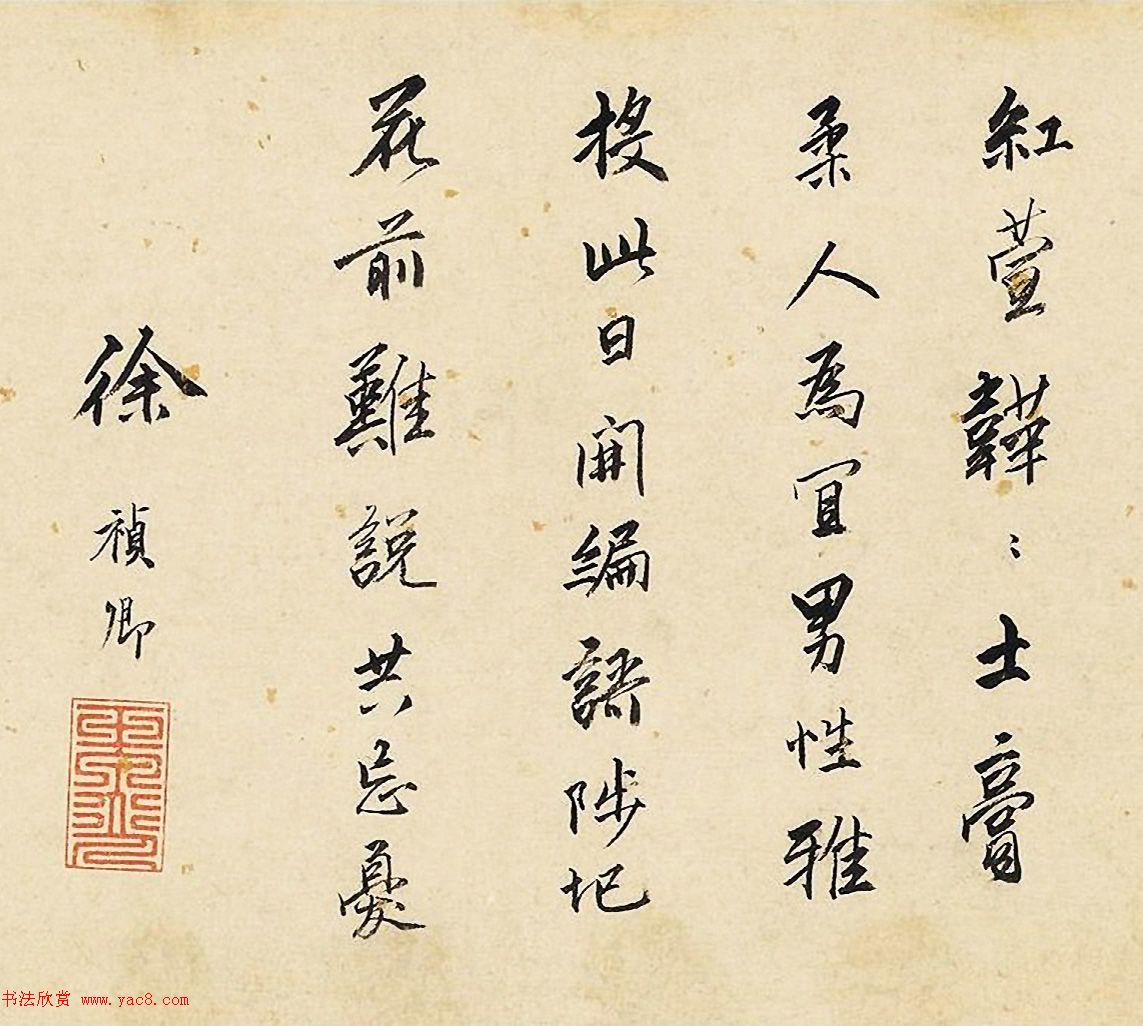 紅萱韡〻土膏
柔人為宜男性雅
投此日開編語陟圯
花前難說共忘憂
徐禎卿
书法欣赏 www.yac8.com